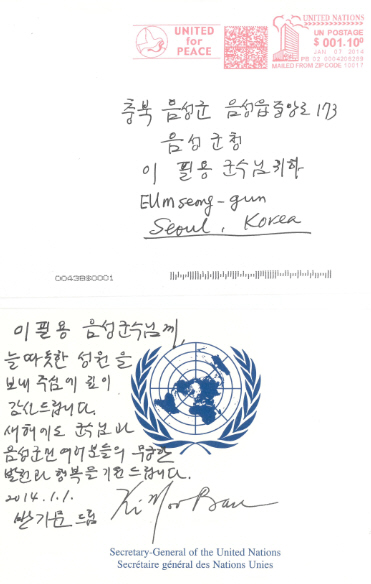 UNITED
for
PEACE
UNITED NATIONS
UN POSTAGE
$ 001.10⁰
JAN 07 2014
MAILED FROM ZIP CODE 10017
충북 음성군 음성읍 중앙로 173
음성군청
이 필용 군수님 귀하
EUmseong-gun
Seoul, Korea
0043BS0001
이필용 음성군수님께,
늘 따뜻한 성원을
보내 주심에 깊이
감사드립니다.
새해에도 군수님과
음성군민 여러분들의 무궁한
발전과 행복을 기원드립니다.
2014.1.1.
반기문 드림
Ki Moon Ban
Secretary-General of the United Nations
Secrétaire général des Nations Unies